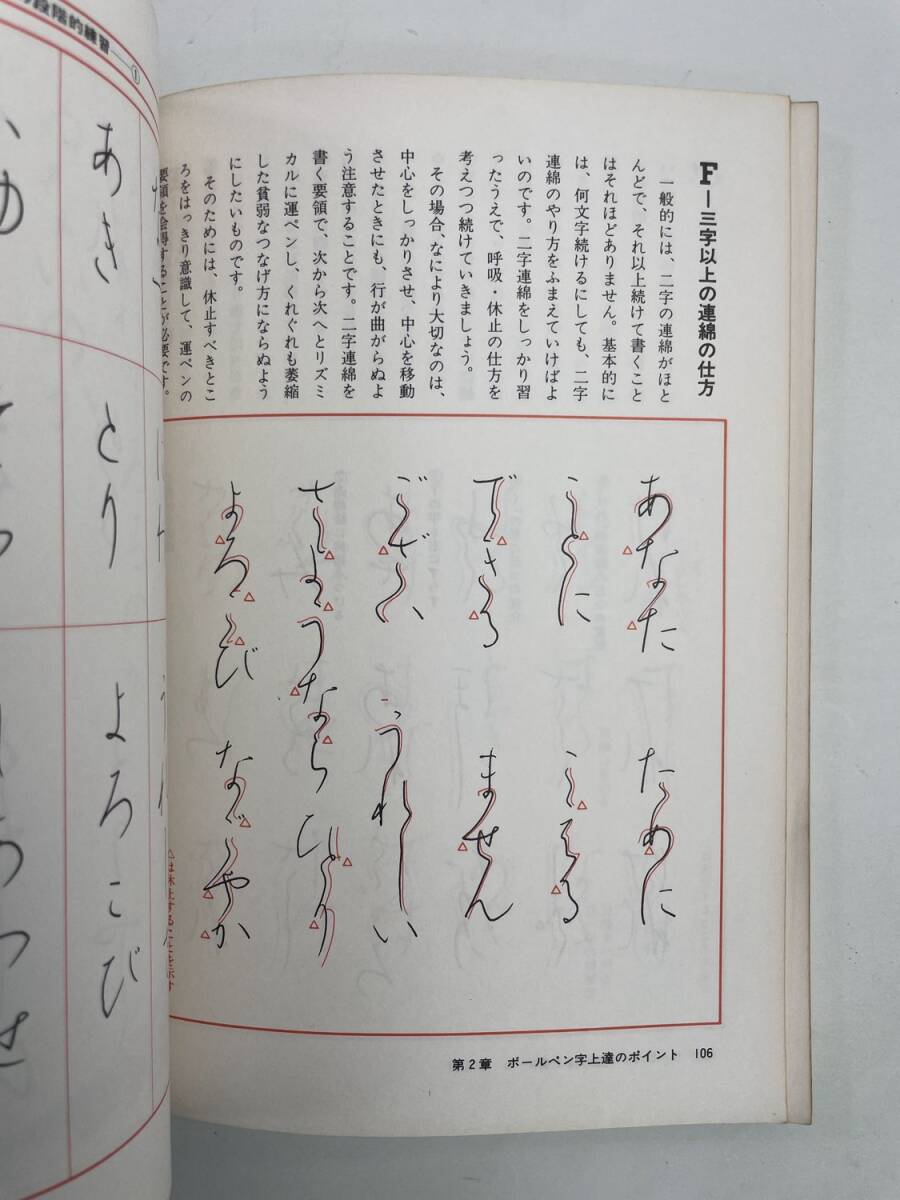 F―三字以上の連綿の仕方
一般的には、二字の連綿がほと
んどで、それ以上続けて書くこと
はそれほどありません。基本的に
は、何文字続けるにしても、二字
連綿のやり方をふまえていけばよ
いのです。二字連綿をしっかり習
ったうえで、呼吸・休止の仕方を
考えつつ続けていきましょう。
その場合、なにより大切なのは、
中心をしっかりさせ、中心を移動
させたときにも、行が曲がらぬよ
う注意することです。二字連綿を
書く要領で、次から次へとリズミ
カルに運ペンし、くれぐれも萎縮
した貧弱なつなげ方にならぬよう
にしたいものです。
そのためには、休止すべきとこ
ろをはっきり意識して、運ペンの
要領を会得することが必要です。
あなた ために
ことに
できる ません
ござい うれしい
さようなら ひとり
よろこび なごやか
△は休止することを示す
第2章 ボールペン字上達のポイント 106
段階的練習――①
あき
とり
よろこび